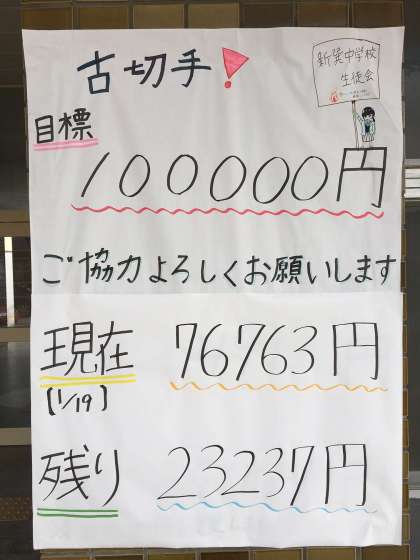 古切手!
新巽中学校
生徒会
目標
100000円
ご協力よろしくお願いします
現在 76763円
【1/19】
残り 23237円